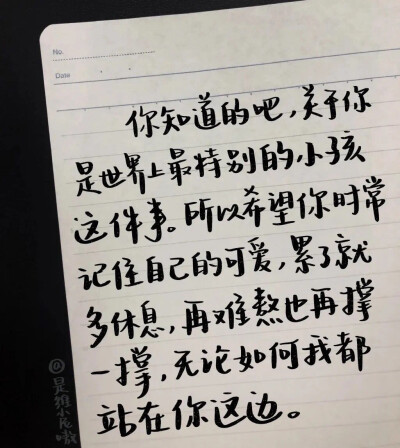 No.
Date
你知道的吧,关于你
是世界上最特别的小孩
这件事。所以希望你时常
记住自己的可爱,累了就
多休息,再难熬也再撑
一撑,无论如何我都
站在你这边。